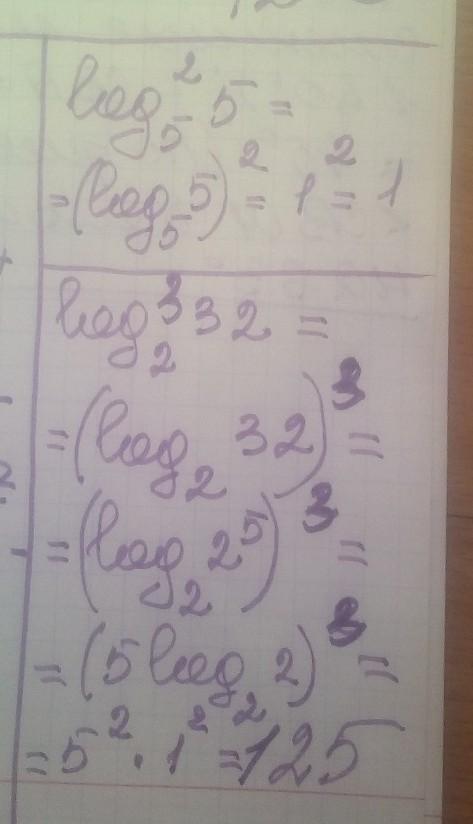 log₅² 5 =
= (log₅ 5)² = 1² = 1
log₂³ 32 =
= (log₂ 32)³ =
= (log₂ 2⁵)³ =
= (5 log₂ 2)³ =
= 5² · 1² = 125